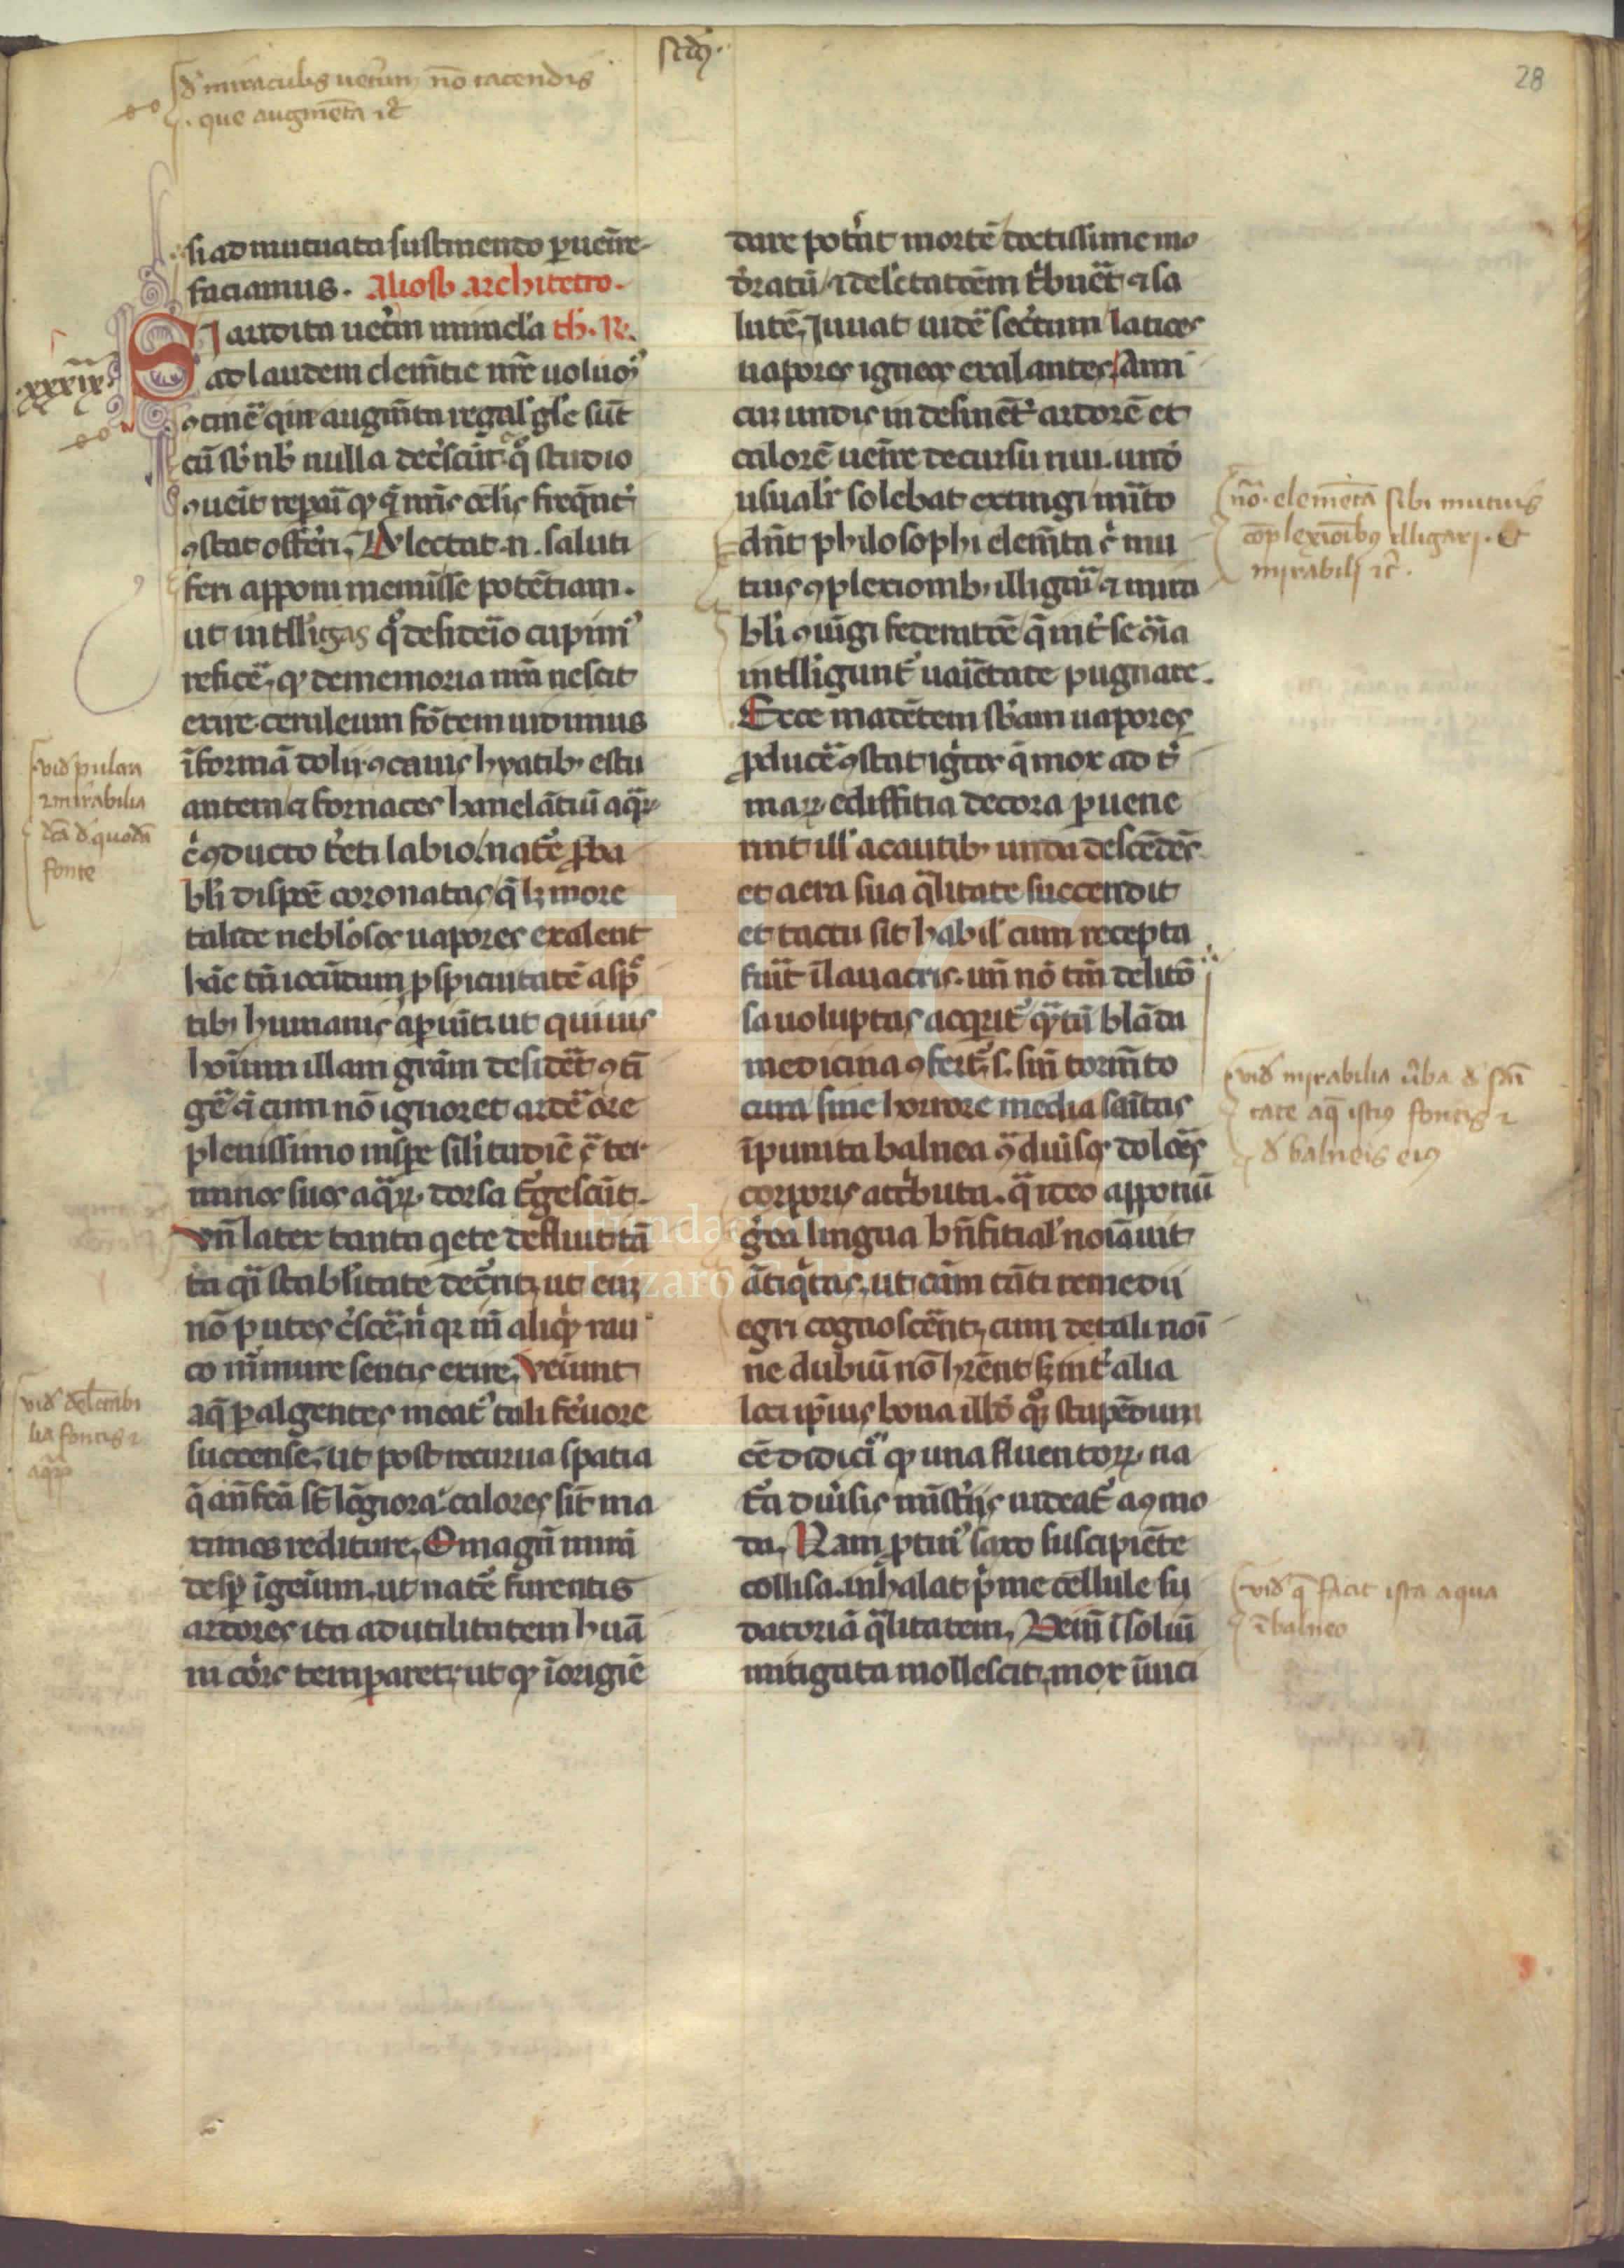 scd'9.
28
d' miraculis ueterum nō tacendis
que augmēta ⁊c̄
si ad mutuata sustinendo ꝑuenīre
faciamus. Aliosb architetro.
xxxix
SI audita uet'm miracl'a th. R.
ad laudem clemētie nr̄e uoluo'
ꝯtinē qm̄ augm̄ta regal' gl'e sūt
cū sb' nb' nulla dec'scūt q̊ studio
ꝯueīt repaī qđ ī nr̄is ocl'is freq̄nt'
ꝯstat offerri. Delectat .n. saluti
feri apponi meminisse potētiam.
ut intelligas q̊ desideīo cupim'
reficē, qđ de memoria nr̄a nescit
exire ceruleum fōtem uidimus
ī formā dolij ꝯcauis hyatib' estu
antem ⁊ fornaces hanelātiū aq̄ꝝ
c'ꝯducto t'eti labio nat'e ꝓba
bl'i dispōe coronatas q̄ lꝫ more
talide nebl'osos uapores exalent
hāc tn̄ iocūdam ꝑspicuitatē aspc̄
tib' humanis apīunt ut quiuis
hoīum illam grām desidēt ꝯtī
gē ⁊ cum nō ignoret ardē ore
plenissimo inspe sil'itudīe c̄ ter
minos suos aq̄ꝝ dorsa t'gescūt.
Vn̄ latex tanta qete defluit tā
ta q̄i stabl'itate dec'rit, ut euꝫ
nō putes c'scē, n̄ qꝛ in̄ aliqđ rau
co m'mure sentis exire, Veiunt
aq̄ ꝑ algentes meat' tali feruore
succense, ut post recurua spatia
q̄ an̄ fcā st̄ lōgiora calores sīt ma
ximos rediture, O magn̄i miri
desꝑ īgeīum, ut nat'e furentis
ardores ita ad utilitatem huā
ni cōris temperaret, ut qđ ī origīe
dare pot'at mortē doctissime mo
d'ratū ⁊ delectatōem t'buēt ⁊ sa
lutē, Iuuat uidē secretum latices
uapores igneos exalantes, Ami
cū undis indesinēt' ardorē et
calorē uenīre decursu riui und'
usualr̄ solebat extingi m'ito
dn̄t philosophi elem̄ta s' mu
tuis ꝯplexionib' illigari ⁊ mira
bl'i ꝯiūgi federatōe q̄ int' se ꝯtia
intelligunt' uaietate pugnare.
Ecce madētem sb'am uapores
ꝓducē ꝯstat igītos q̄ mox ad t'
maꝝ ediffitia decora ꝑuene
rint ill' a cautib' unda descēdēs
et aera sua q̄litate succendit
et tactu sit habil' cum recepta
fuīt ī lauacris. un̄ nō tm̄ delitō
sa uoluptas acqrit' q̄tū blāda
medicina ꝯfert', s. sin̄ torm̄to
cura sine horrore media saītas
īpunita balnea ꝯ diu'sos dolōes
corporis attributa. q̄ ideo apponū
g̊ca lingua bn̄fitial' noīauit
ātiq̄tas, ut cām tāti remedii
egri cognoscēnt, cum de tali noī
ne dubiū nō hr̄ent, Sꝫ int' alia
loci ip̄ius bona ill' q̊ꝫ stupēdum
cē didici qđ una fluentoꝝ na
t'a diu'sis mīst'iis uideat' aꝯmo
da, Nam ꝓtin' saxo suscipiēte
collisa inhalat p'me cellule su
datoriā q̄litatem, Dein̄ ī soliū
mitigata mollescit, mox iūnci
vid' pulcra
⁊ mirabilia
dc̄a d' quodā
fonte
vid' delectabi
lia fontis ⁊
aq̄ꝝ
nō. elemēta sibi mutuis
cōplexiōibꝰ illigari. et
mirabili ⁊c̄.
vid' mirabilia v'ba d' sāi
tate aq̄ istiꝰ fontis ⁊
d' balneis eiꝰ
vid' q̄ facit ista aqua
ī balneo
Fundación
Lázaro Galdiano